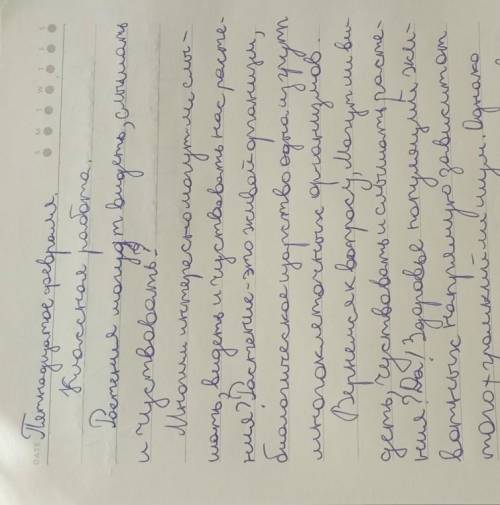 DATE
S M T W T F S
Пятнадцатое февраля.
Классная работа.
Растения могут видеть, слышать
и чуствовать?
Многим интересно могут ли слы-
шать, видеть и чуствовать нас расте-
ния? Растение - это живой организм,
биологическое царство одна из групп
многоклеточных организмов.
Вернемся к вопросу, Могут ли ви-
деть, чуствовать и слышать расте-
ния? Да! Здоровье популяция жи-
вотных напрямую зависит от
того, громкий ли шум. Однако